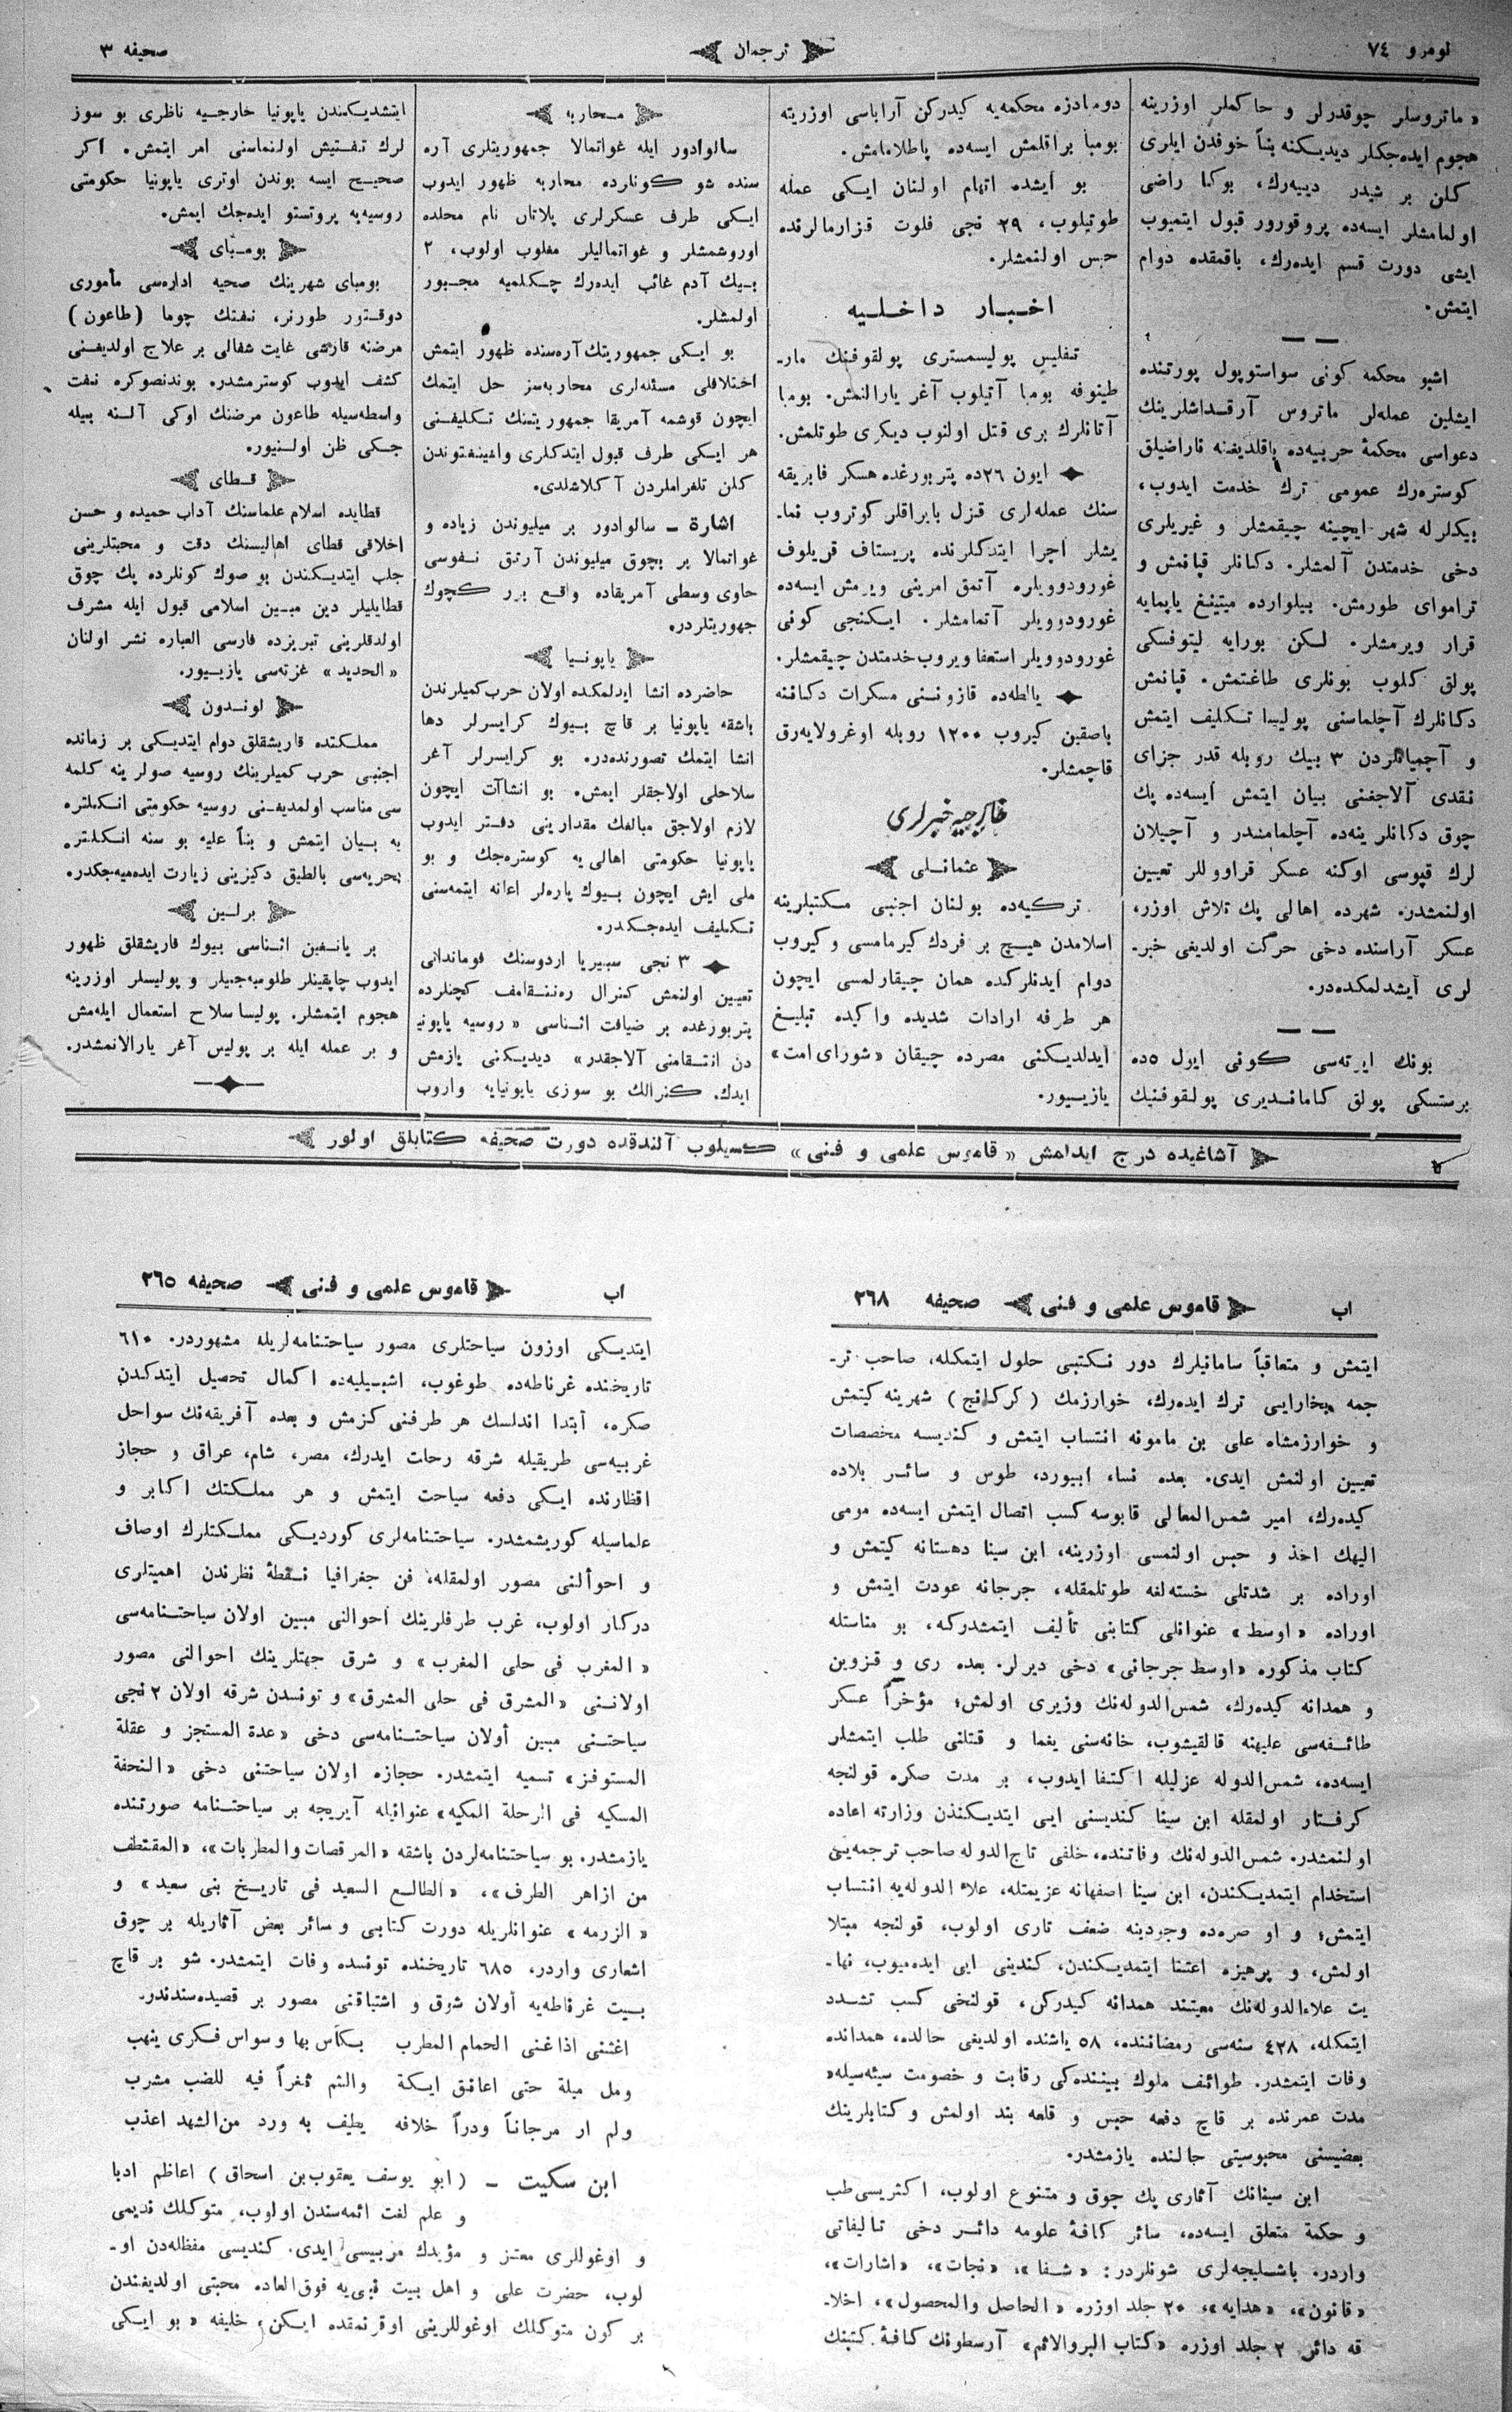 نومرو ٧٤
ترجمان
صحیفه ٣
« ماتروسلر چوقدرلر و حاكملر اوزرینه
هجوم ایده‌جكلر دیدیكنه بناً خوفدن ایلری
كلن بر شیدر دییه‌رك، بوكا راضی
اولمامشلر ایسه‌ده پروقورور قبول ایتمیوب
ایشی دورت قسم ایده‌رك، باقمقده دوام
ایتمش.
اشبو محكمه كونی سواستوپول پورتنده
ایشلین عمله‌لر ماتروس آرقداشلرینك
دعواسی محكمۀ حربیه‌ده باقلدیغنه ناراضیلق
كوستره‌رك عمومی ترك خدمت ایدوب،
بیكلرله شهر ایچینه چیقمشلر و غیریلری
دخی خدمتدن آلمشلر. دكانلر قپانمش و
تراموای طورمش. بیلوارده میتینغ یاپمایه
قرار ویرمشلر. لـكن بورایه لیتوفسكی
پولق كلوب بونلری طاغتمش. قپانمش
دكانلرك آچلماسنی پولیسا تـكلیف ایتمش
و آچمیانلردن ٣ بیك روبله قدر جزای
نقدی آلاجغنی بیان ایتمش ایسه‌ده پك
چوق دكانلر ینه‌ده آچلمامشدر و آچیلان
لرك قپوسی اوكنه عسكر قراووللر تعیین
اولنمشدر. شهرده اهالی پك تلاش اوزر،
عسكر آراسنده دخی حركت اولدیغی خبر-
لری ایشدلمكده‌در.
بونك ایرته‌سی كونی ایول ٥ده
برستسكی پولق كاماندیری پولقوفنیك
دومبادزه محكمه‌یه كیدركن آراباسی اوزریته
بومبا براقلمش ایسه‌ده پاطلامامش.
بو ایشده اتهام اولنان ایـكی عمله
طوتیلوب، ٢٩ نجی فلوت قزارمالرنده
حبس اولنمشلر.
اخـبـار داخلـیه
تفلیس پولیسمستری پولقوفنیك مار-
طینوفه بومبا آتیلوب آغر یارالنمش. بومبا
آتانلرك بری قتل اولنوب دیكری طوتلمش.
ایون ٢٦ده پتربورغده هسكر فابریقه
سنك عمله‌لری قزل بایراقلر كوتروب نما-
یشلر اجرا ایتدكلرنده پریستاف قریلوف
غورودوویلره آتمق امرینی ویرمش ایسه‌ده
غورودوویلر آتمامشلر. ایـكنجی كونی
غورودوویلر استعفا ویروب خدمتدن چیقمشلر.
یالطه‌ده قازونـنی مسكرات دكاننه
باصقین كیروب ١٢٠٠ روبله اوغرولایه‌رق
قاچمشلر.
خارجیه خبرلری
عثمانـلی
تركیه‌ده بولنان اجنبی مـكتبلرینه
اسلامدن هیـچ بر فردك كیرمامسی و كیروب
دوام ایدنلركده همان چیقارلمسی ایچون
هر طرفه ارادات شدیده و اكیده تبلیغ
ایدلدیـكنی مصرده چیقان «شورای امت»
یازیـیور.
محاربه
سالوادور ایله غواتمالا جمهوریتلری آره
سنده شو كونلرده محاربه ظهور ایدوب
ایـكی طرف عسكرلری پلاتان نام محلده
اوروشمشلر و غواتمالیلر مغلوب اولوب، ٢
بـیك آدم غائب ایده‌رك چـكلمیه مجـبور
اولمشلر.
بو ایـكی جمهوریتك آره‌سنده ظهور ایتمش
اختلافلی مسئله‌لری محاربه‌سز حل ایتمك
ایچون قوشمه آمریقا جمهوریتینك تـكلیفـنی
هر ایـكی طرف قبول ایتدكلری واشینغتوندن
كلن تلغراملردن آكلاشلدی.
اشارة ـ سالوادور بر میلیوندن زیاده و
غواتمالا بر بچوق میلیوندن آرتـق نـفوسی
حاوی وسطی آمریقاده واقـع برر كـچوك
جمهوریتلردر.
یاپونـیا
حاضرده انشا ایدلمكده اولان حرب كمیلرندن
باشقه یاپونیا بر قاچ بـیوك كرایسرلر دها
انشا ایتمك تصورنده‌در. بو كرایسرلر آغر
سلاحلی اولاجقلر ایمش. بو انشاآت ایچون
لازم اولاجق مبالغك مقدارینی دفتر ایدوب
یاپونیا حكومتی اهالی یه كوستره‌جك و بو
ملی ایش ایچون بـیوك پاره‌لر اعانه ایتمه‌سنی
تـكلیف ایده‌جـكدر.
٣ نجی سیبریا اردوسنك قوماندانی
تعیین اولنمش كنرال ره‌ننـقامف كچنلرده
پتربورغده بر ضیافت اثـناسی «روسیه یاپونیـ
دن انتـقامنی آلاجقدر» دیدیـكنی یازمش
ایدك. كنرالك بو سوزی یاپونیایه واروب
ایتشدیـكندن یاپونیا خارجـیه ناظری بو سوز
لرك تـفتیش اولنماسنی امر ایتمش. اكر
صحیـح ایسه بوندن اوتری یاپونیا حكومتی
روسیه‌یه پروتستو ایده‌جك ایمش.
بومـبای
بومبای شهرینك صحیه اداره‌سی مأموری
دوقـتور طورنر، نفتك چوما (طاعون)
مرضنه قارشی غایت شفالی بر علاج اولدیغـنی
كشف ایدوب كوسترمشدر. بوندنصوكره نفت
واسطه‌سیله طاعون مرضنك اوكی آلـنه بیله
جـكی ظن اولـنیور.
قـطای
قطایده اسلام علماسنك آداب حمیده و حسن
اخلاقی قطای اهالیسنك دقت و محبتلرینی
جلب ایتدیـكندن بو صوك كونلرده پك چوق
قطایلیلر دین مبـین اسلامی قبول ایله مشرف
اولدقلرینی تبریزده فارسی العباره نشر اولنان
«الحدید» غزته‌سی یازیـیور.
لوندون
مملـكتده قاریشقلق دوام ایتدیـكی بر زمانده
اجنبی حرب كمیلرینك روسیه صولرینه كلمه
سی مناسب اولمدیغـنی روسیه حكومتی انـكلتره
یه بـیان ایتمش و بناً علیه بو سنه انـكلتره
بحریه‌سی بالطیق دكیزینی زیارت ایده‌میه‌جكدر.
برلـین
بر یانـغین اثـناسی بیوك قاریشقلق ظهور
ایدوب چاپقینلر طلومبه‌جیلر و پولیسلر اوزرینه
هجوم ایتمشلر. پولیسا سلاح استعمال ایله‌مش
و بر عمله ایله بر پولیس آغر یارالانمشدر.
آشاغیده درج ایدلمش «قاموس علمی و فنی» كسیلوب آلندقده دورت صحیفه كتابلق اولور
اب
قاموس علمی و فنی
صحیفه ٢٦٨
ایتمش و متعاقباً سامانیلرك دور نـكبتی حلول ایتمكله، صاحب تر-
جمه بخارایی ترك ایده‌رك، خوارزمك (كركانج) شهرینه كیتمش
و خوارزمشاه علی بن مامونه انتساب ایتمش و كندیسنه مخصصات
تعیین اولنمش ایدی. بعده نسا، ابیورد، طوس و سائـر بلاده
كیده‌رك، امیر شمس‌المعالی قابوسه كسب اتصال ایتمش ایسه‌ده مومی
الیهك اخذ و حبس اولنمسی اوزرینه، ابن سینا دهستانه كیتمش و
اوراده بر شدتلی خسته‌لغه طوتلمقله، جرجانه عودت ایتمش و
اوراده «اوسط» عنوانلی كتابنی تألیف ایتمشدركه، بو مناسبتله
كتاب مذكوره «اوسط جرجانی» دخی دیرلر. بعده ری و قزوین
و همدانه كیده‌رك، شمس‌الدوله‌نك وزیری اولمش؛ مؤخراً عسكر
طائـفه‌سی علیهنه قالقیشوب، خانه‌سنی یغما و قـتلنی طلب ایتمشلر
ایسه‌ده، شمس‌الدوله عزلیله اكتفا ایدوب، بر مدت صكره قولنجه
كرفـتار اولمقله ابن سینا كندیسنی ایی ایتدیـكندن وزارته اعاده
اولنمشدر. شمس‌الدوله‌نك وفاتنده، خلفی تاج‌الدوله صاحب ترجمه‌یی
استخدام ایتمدیـكندن، ابن سینا اصفهانه عزیمتله، علاء الدوله‌یه انتساب
ایتمش؛ و او صره‌ده وجودینه ضعف تاری اولوب، قولنجه مبتلا
اولمش، و پرهیزه اعتنا ایتمدیـكندن، كندینی ایی ایده‌میوب، نها-
یت علاءالدوله‌نك معیتند همدانه كیدركن، قولنجی كسب تشدد
ایتمكله، ٤٢٨ سنه‌سی رمضاننده، ٥٨ یاشنده اولدیغی حالده، همدانده
وفات ایتمشدر. طوائف ملوك بیننده‌كی رقابت و خصومت سیئه‌سیله
مدت عمرنده بر قاچ دفعه حبس و قلعه بند اولمش و كتابلرینك
بعضیسنی محبوسیتی حالنده یازمشدر.
ابن سینانك آثاری پك چوق و متنوع اولوب، اكثریسی طب
و حكمة متعلق ایسه‌ده، سائر كافۀ علومه دائـر دخی تالیفاتی
واردر. باشـلیجه‌لری شونلردر: «شـفا»، «نجات»، «اشارات»،
«قانون»، «هدایه»، ٢٠ جلد اوزره «الحاصل والمحصول»، اخلا-
قه دائر ٢ جلد اوزره «كتاب البر والاثم» آرسطونك كافۀ كتبنك
اب
قاموس علمی و فنی
صحیفه ٢٦٥
ایتدیـكی اوزون سیاحتلری مصور سیاحتنامه‌لریله مشهوردر. ٦١٠
تاریخنده غرناطه‌ده طوغوب، اشبـیلیه‌ده اكمال تحصیل ایتدكدن
صكره، ابتدا اندلسك هر طرفنی كزمش و بعده آفریقه‌نك سواحل
غربیه‌سی طریقیله شرقه رحلت ایدرك، مصر، شام، عراق و حجاز
اقظارنده ایـكی دفعه سیاحت ایتمش و هر مملـكتك اكابر و
علماسیله كوریشمشدر. سیاحتنامه‌لری كوردیـكی مملـكتلرك اوصاف
و احوالنی مصور اولمقله، فن جغرافیا نـقطۀ نظرندن اهمیتلری
دركار اولوب، غرب طرفلرینك احوالنی مبین اولان سیاحتـنامه‌سی
«المغرب فی حلی المغرب» و شرق جهتلرینك احوالنی مصور
اولانـنی «المشرق فی حلی المشرق» و تونسدن شرقه اولان ٢ نجی
سیاحتـنی مبین اولان سیاحتـنامه‌سی دخی «عدة المستجز و عقلة
المستوفز» تسمیه ایتمشدر. حجازه اولان سیاحتنی دخی «النحفة
المسكیه فی الرحلة المكیه» عنوانیله آیریجه بر سیاحتـنامه صورتنده
یازمشدر. بو سیاحتنامه‌لردن باشقه «المرقصات والمطربات»، «المقتطف
من ازاهر الطرف»، «الطالـع السعید فی تاریـخ بنی سعید» و
«الزرمه» عنوانلریله دورت كتابی و سائر بعض آثاریله بر چوق
اشعاری واردر، ٦٨٥ تاریخنده تونسده وفات ایتمشدر. شو بر قاچ
بـیت غرناطه‌یه اولان شوق و اشتیاقنی مصور بر قصیده‌سندندر.
اغثنی اذا غنی الحمام المطرب بـكأس بها وسواس فـكری ینهب
ومل میلة حتی اعانق ایـكة والثم ثغراً فیه للضب مشرب
ولم ار مرجاناً ودراً خلافه یطیف به ورد من‌الشهد اعذب
ابن سكیت ـ (ابو یوسف یعقوب‌بن اسحاق) اعاظم ادبا
و علم لغت ائمه‌سندن اولوب، متوكلك ندیمی
و اوغوللری معتز و مؤیدك مربیسی ایدی. كندیسی مفظله‌دن او-
لوب، حضرت علی و اهل بیت نبی‌یه فوق‌العاده محبتی اولدیغندن
بر كون متوكلك اوغوللرینی اوقوتمقده ایـكن، خلیفه «بو ایـكی